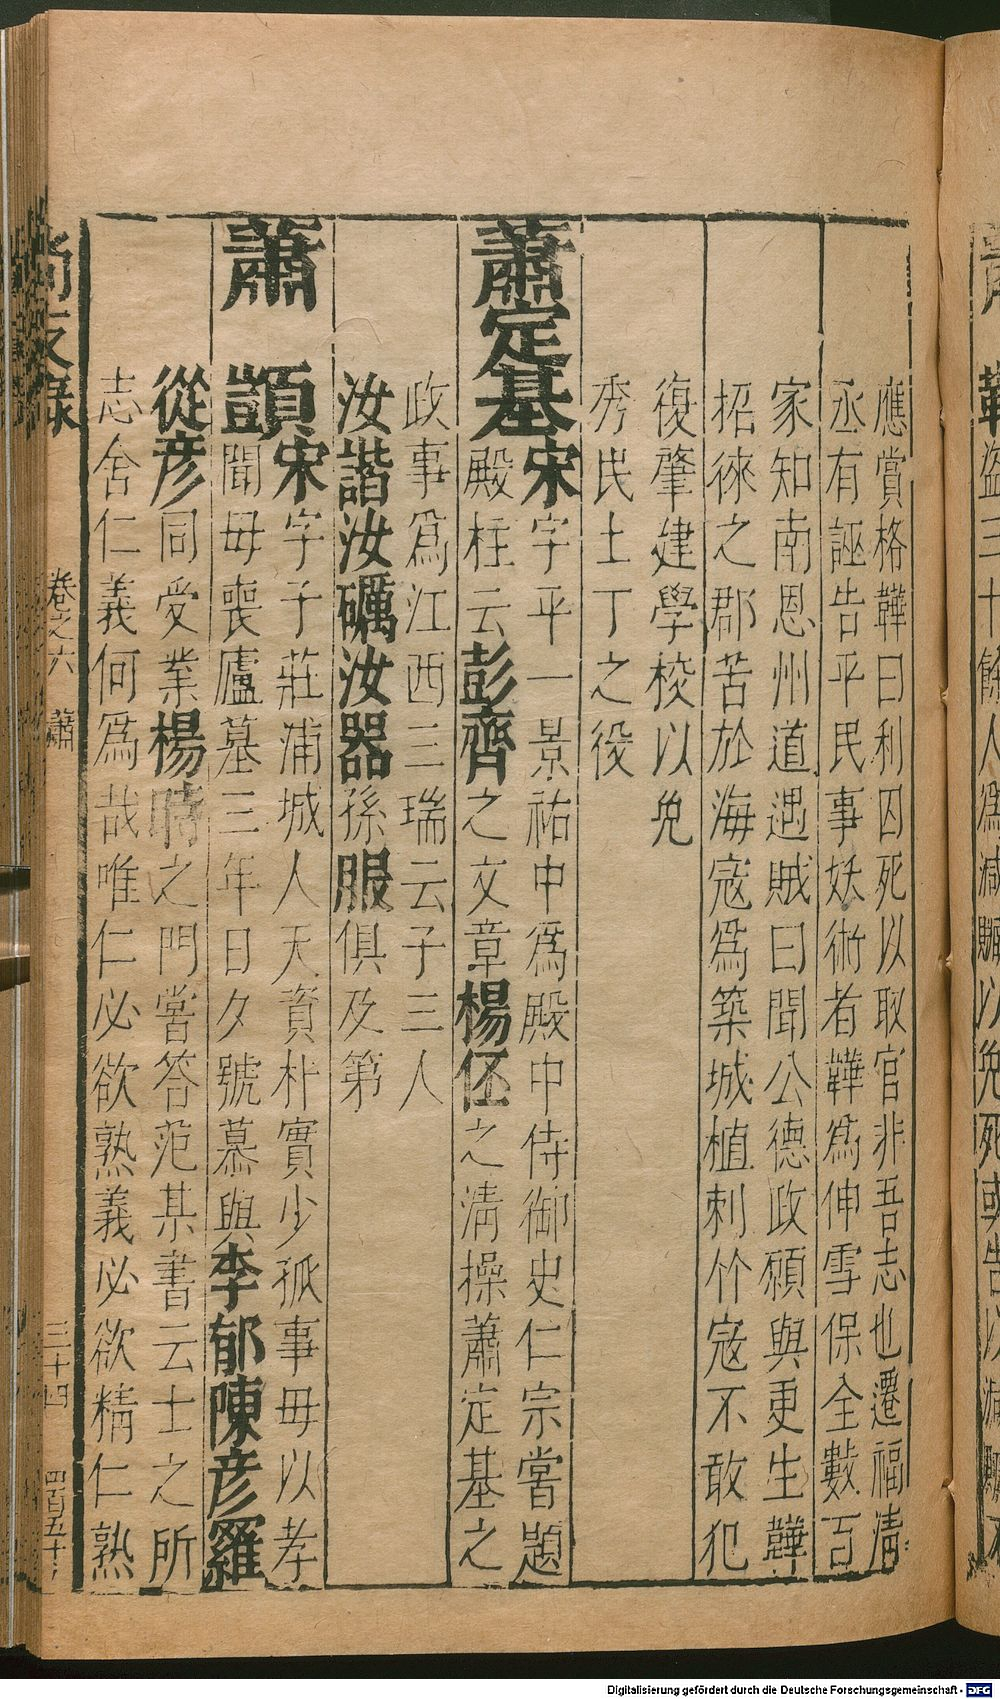 應賞格韡曰利囚死以取官非吾志也遷福清
丞有誣告平民事妖術者韡爲伸雪保全數百
家知南恩州道遇賊曰聞公德政願與更生韡
招徠之郡苦於海寇爲築城植刺竹寇不敢犯
復肇建學校以免
秀民土丁之役
蕭定基宋字平一景祐中爲殿中侍御史仁宗嘗題
殿柱云彭齊之文章楊伾之清操蕭定基之
政事爲江西三瑞云子三人
汝諧汝礪汝器孫服俱及第
蕭顗宋字子莊浦城人天資朴實少孤事毋以孝
聞毋喪廬墓三年日夕號慕與李郁陳彦羅
從彦同受業楊時之門嘗答范某書云士之所
志舍仁義何爲哉唯仁必欲熟義必欲精仁熟
尚友錄
卷之六 蕭
三十四
盜三十餘人爲減贓以免死或告以
Digitalisierung gefördert durch die Deutsche Forschungsgemeinschaft - DFG